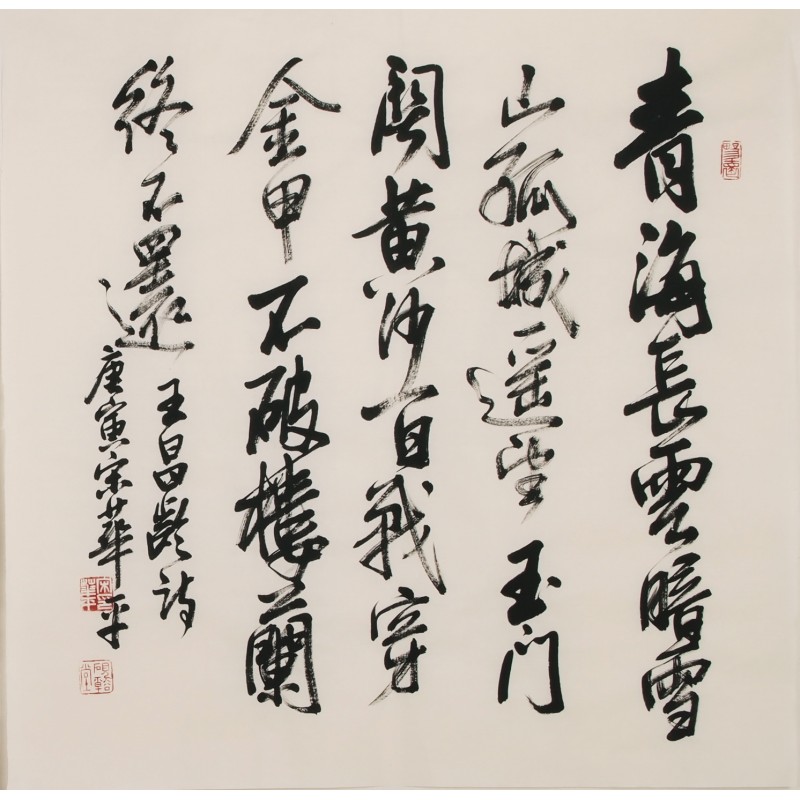 青海長雲暗雪
山孤城遥望玉门
関黄沙百戰穿
金甲不破樓蘭
終不還
王昌齡诗
庚寅宗華平